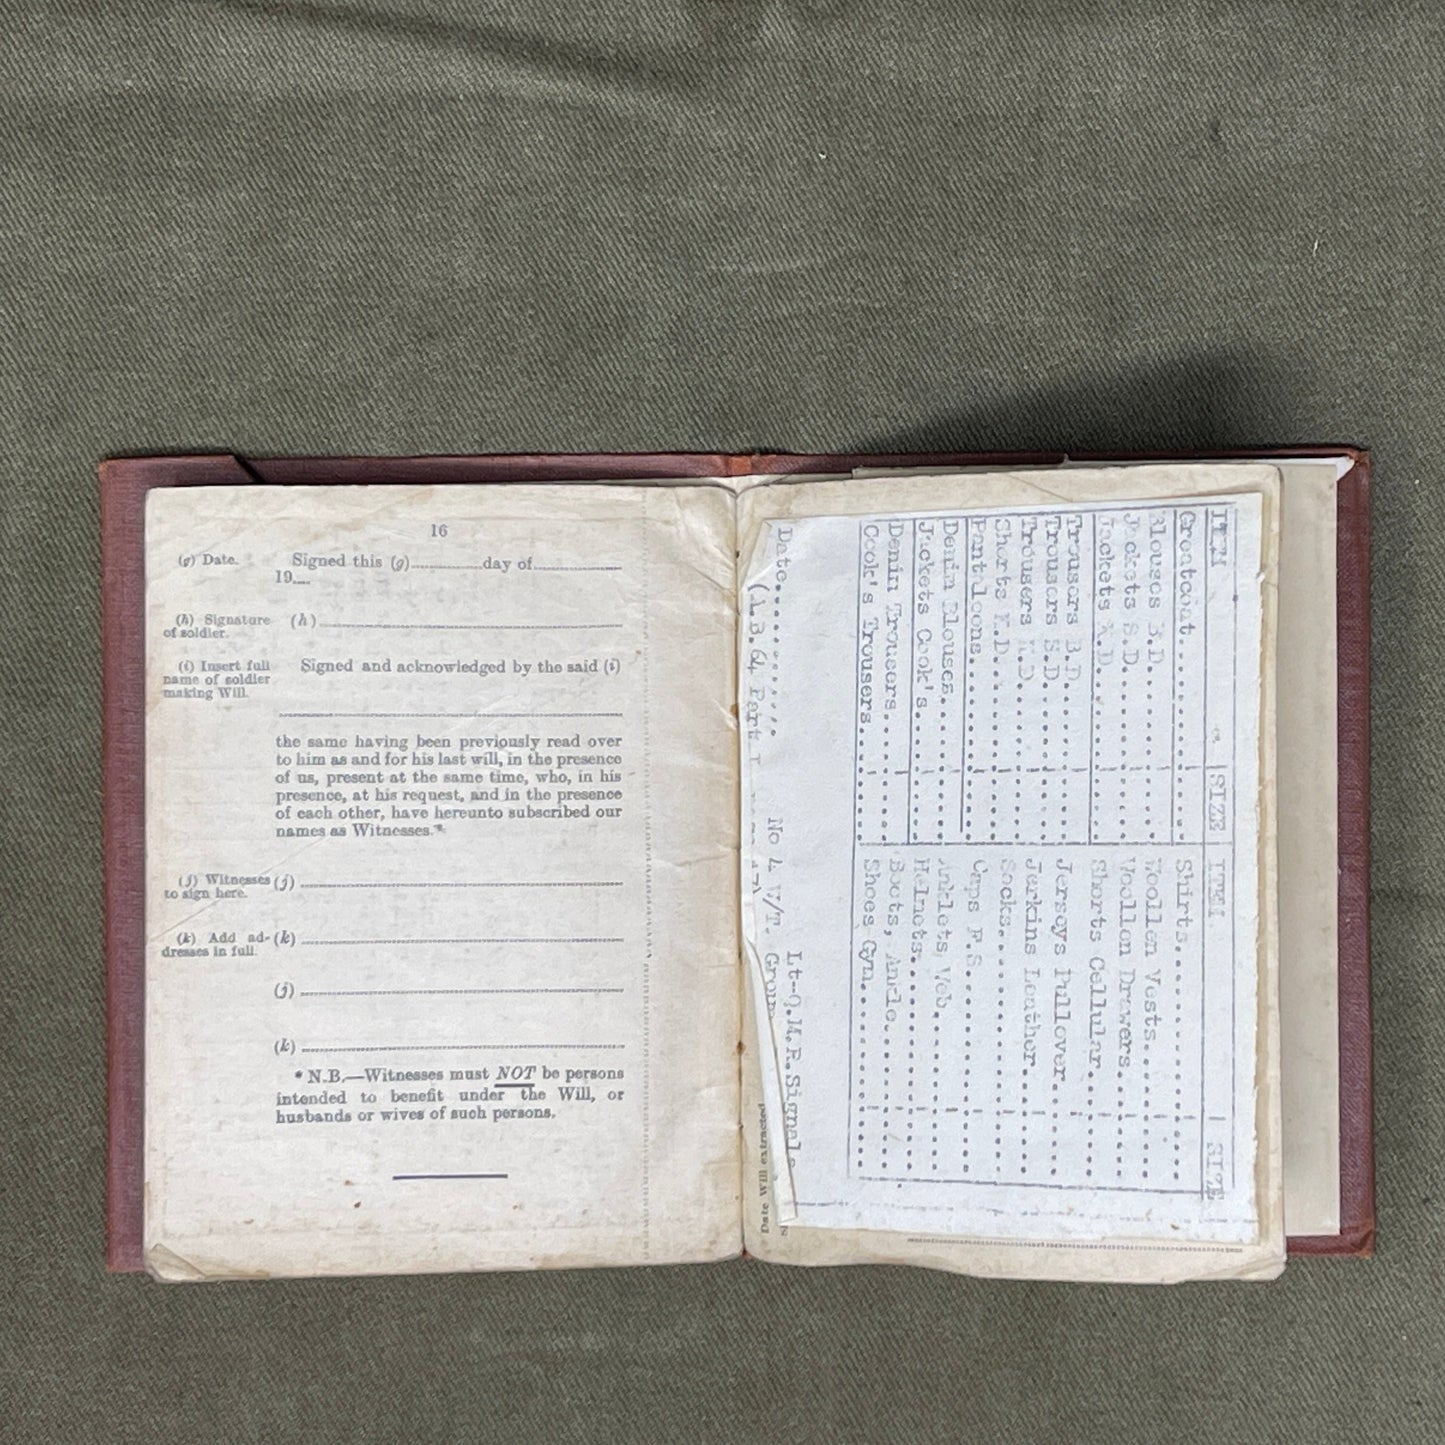 16
(g) Date.
Signed this (g)..................day of......................
19....
(h) Signature
of soldier.
(h)
(i) Insert full
name of soldier
making Will.
Signed and acknowledged by the said (i)
the same having been previously read over
to him as and for his last will, in the presence
of us, present at the same time, who, in his
presence, at his request, and in the presence
of each other, have hereunto subscribed our
names as Witnesses.*
(j) Witnesses
to sign here.
(j)
(k) Add ad-
dresses in full.
(k)
(j)
(k)
* N.B.—Witnesses must NOT be persons
intended to benefit under the Will, or
husbands or wives of such persons.
ITEM SIZE ITEM SIZE
Greatcoat............ Shirts............
Blouses B.D............ Woollen Vests............
Jackets S.D............ Woollen Drawers............
Jackets K.D............ Shorts Cellular............
Trousers B.D............ Jerseys Pullover............
Trousers S.D............ Jerkins Leather............
Trousers K.D............ Socks............
Shorts K.D............ Caps F.S............
Pantaloons............ Anklets Web............
Denim Blouses............ Helmets............
Jackets Cook's............ Boots, Ankle............
Denin Trousers............ Shoes Gym............
Cook's Trousers............
Lt-Q.M.R.Signals
Date............ No 4 W/T. Group
(A.B.64 Part I
Date Will extracted